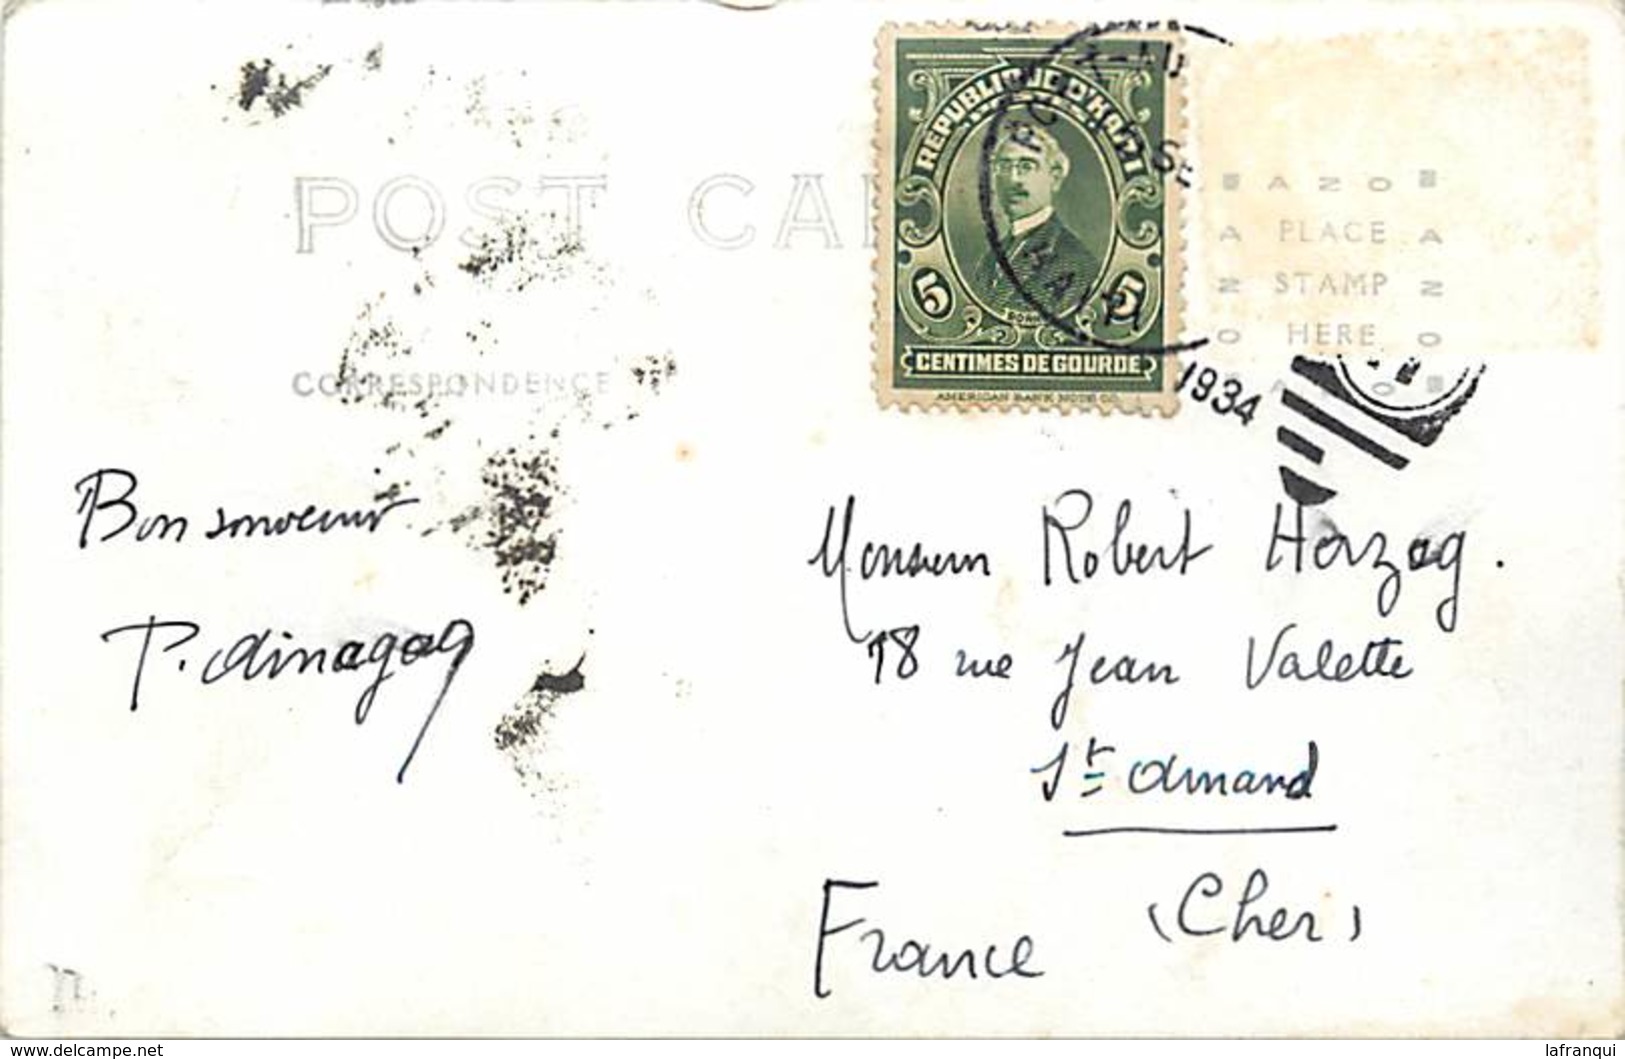 POST CA
CORRESPONDENCE
REPUBLIQUE D'HAITI
5 5
CENTIMES DE GOURDE
AMERICAN BANK NOTE CO.
HAITI
1934
AZO
PLACE
STAMP
HERE
Bon souvenir
Monsieur Robert Herzog.
18 rue Jean Valette
St Amand
(Cher)
France
www.delcampe.net
lafranqui